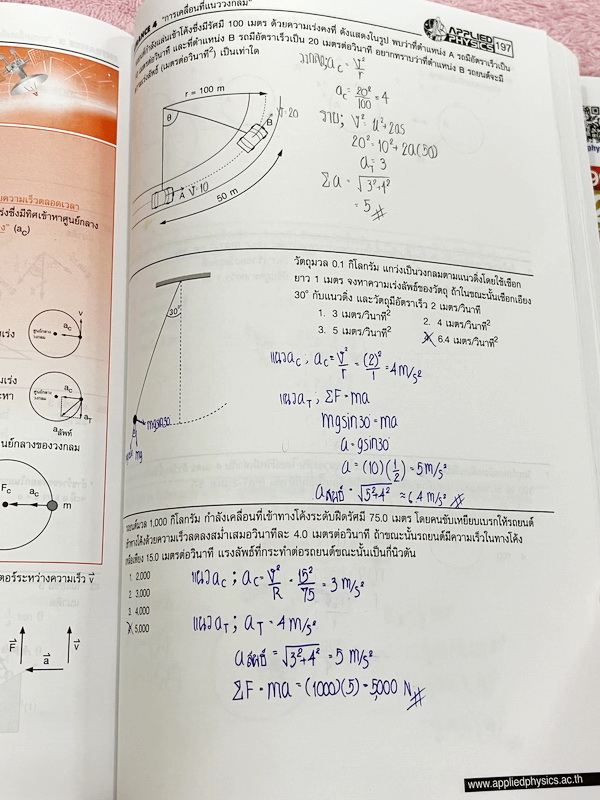 "การเคลื่อนที่แนววงกลม"
APPLIED
PHYSICS
197
กำลังแล่นเข้าโค้งซึ่งมีรัศมี 100 เมตร ด้วยความเร่งคงที่ ดังแสดงในรูป พบว่าที่ตำแหน่ง A รถมีอัตราเร็วเป็น
เมตรต่อวินาที และที่ตำแหน่ง B รถมีอัตราเร็วเป็น 20 เมตรต่อวินาที อยากทราบว่าที่ตำแหน่ง B รถยนต์จะมี
(เมตรต่อวินาที²) เป็นเท่าใด
r = 100 m
θ
B
V=20
A V=10
50 m
a_C = V²/r
a_C = 20²/100 = 4
V² = u²+2as
20² = 10²+2a(50)
a_T = 3
Σa = √3²+4²
= 5
วัตถุมวล 0.1 กิโลกรัม แกว่งเป็นวงกลมตามแนวดิ่งโดยใช้เชือก
ยาว 1 เมตร จงหาความเร่งลัพธ์ของวัตถุ ถ้าในขณะนั้นเชือกเอียง
30° กับแนวดิ่ง และวัตถุมีอัตราเร็ว 2 เมตร/วินาที
1. 3 เมตร/วินาที² 2. 4 เมตร/วินาที²
3. 5 เมตร/วินาที² 4. 6.4 เมตร/วินาที²
30°
mgsin30
mg
แนว a_C , a_C = V²/r = (2)²/1 = 4 m/s²
แนว a_T , ΣF = ma
mgsin30 = ma
a = gsin30
a = (10)(1/2) = 5 m/s²
a ลัพธ์ = √5²+4² ≈ 6.4 m/s²
รถยนต์มวล 1,000 กิโลกรัม กำลังเคลื่อนที่เข้าทางโค้งระดับฝืดรัศมี 75.0 เมตร โดยคนขับเหยียบเบรกให้รถยนต์
เข้าทางโค้งด้วยความเร็วลดลงสม่ำเสมอวินาทีละ 4.0 เมตรต่อวินาที ถ้าขณะนั้นรถยนต์มีความเร็วในทางโค้ง
เหลือเพียง 15.0 เมตรต่อวินาที แรงลัพธ์ที่กระทำต่อรถยนต์ขณะนั้นเป็นกี่นิวตัน
1. 2,000
2. 3,000
3. 4,000
4. 5,000
แนว a_C ; a_C = V²/R = 15²/75 = 3 m/s²
แนว a_T ; a_T = 4 m/s²
a ลัพธ์ = √3²+4² = 5 m/s²
ΣF = ma = (1000)(5) = 5,000 N
www.appliedphysics.ac.th
ความเร็วตลอดเวลา
เร่งซึ่งมีทิศเข้าหาศูนย์กลาง
(a_C)
ศูนย์กลาง
วงกลม
a_C
v
ศูนย์กลาง
วงกลม
a_C
a_T
a ลัพท์
ศูนย์กลางของวงกลม
F_C
a_C
m
เตอร์ระหว่างความเร็ว v
F
a
v